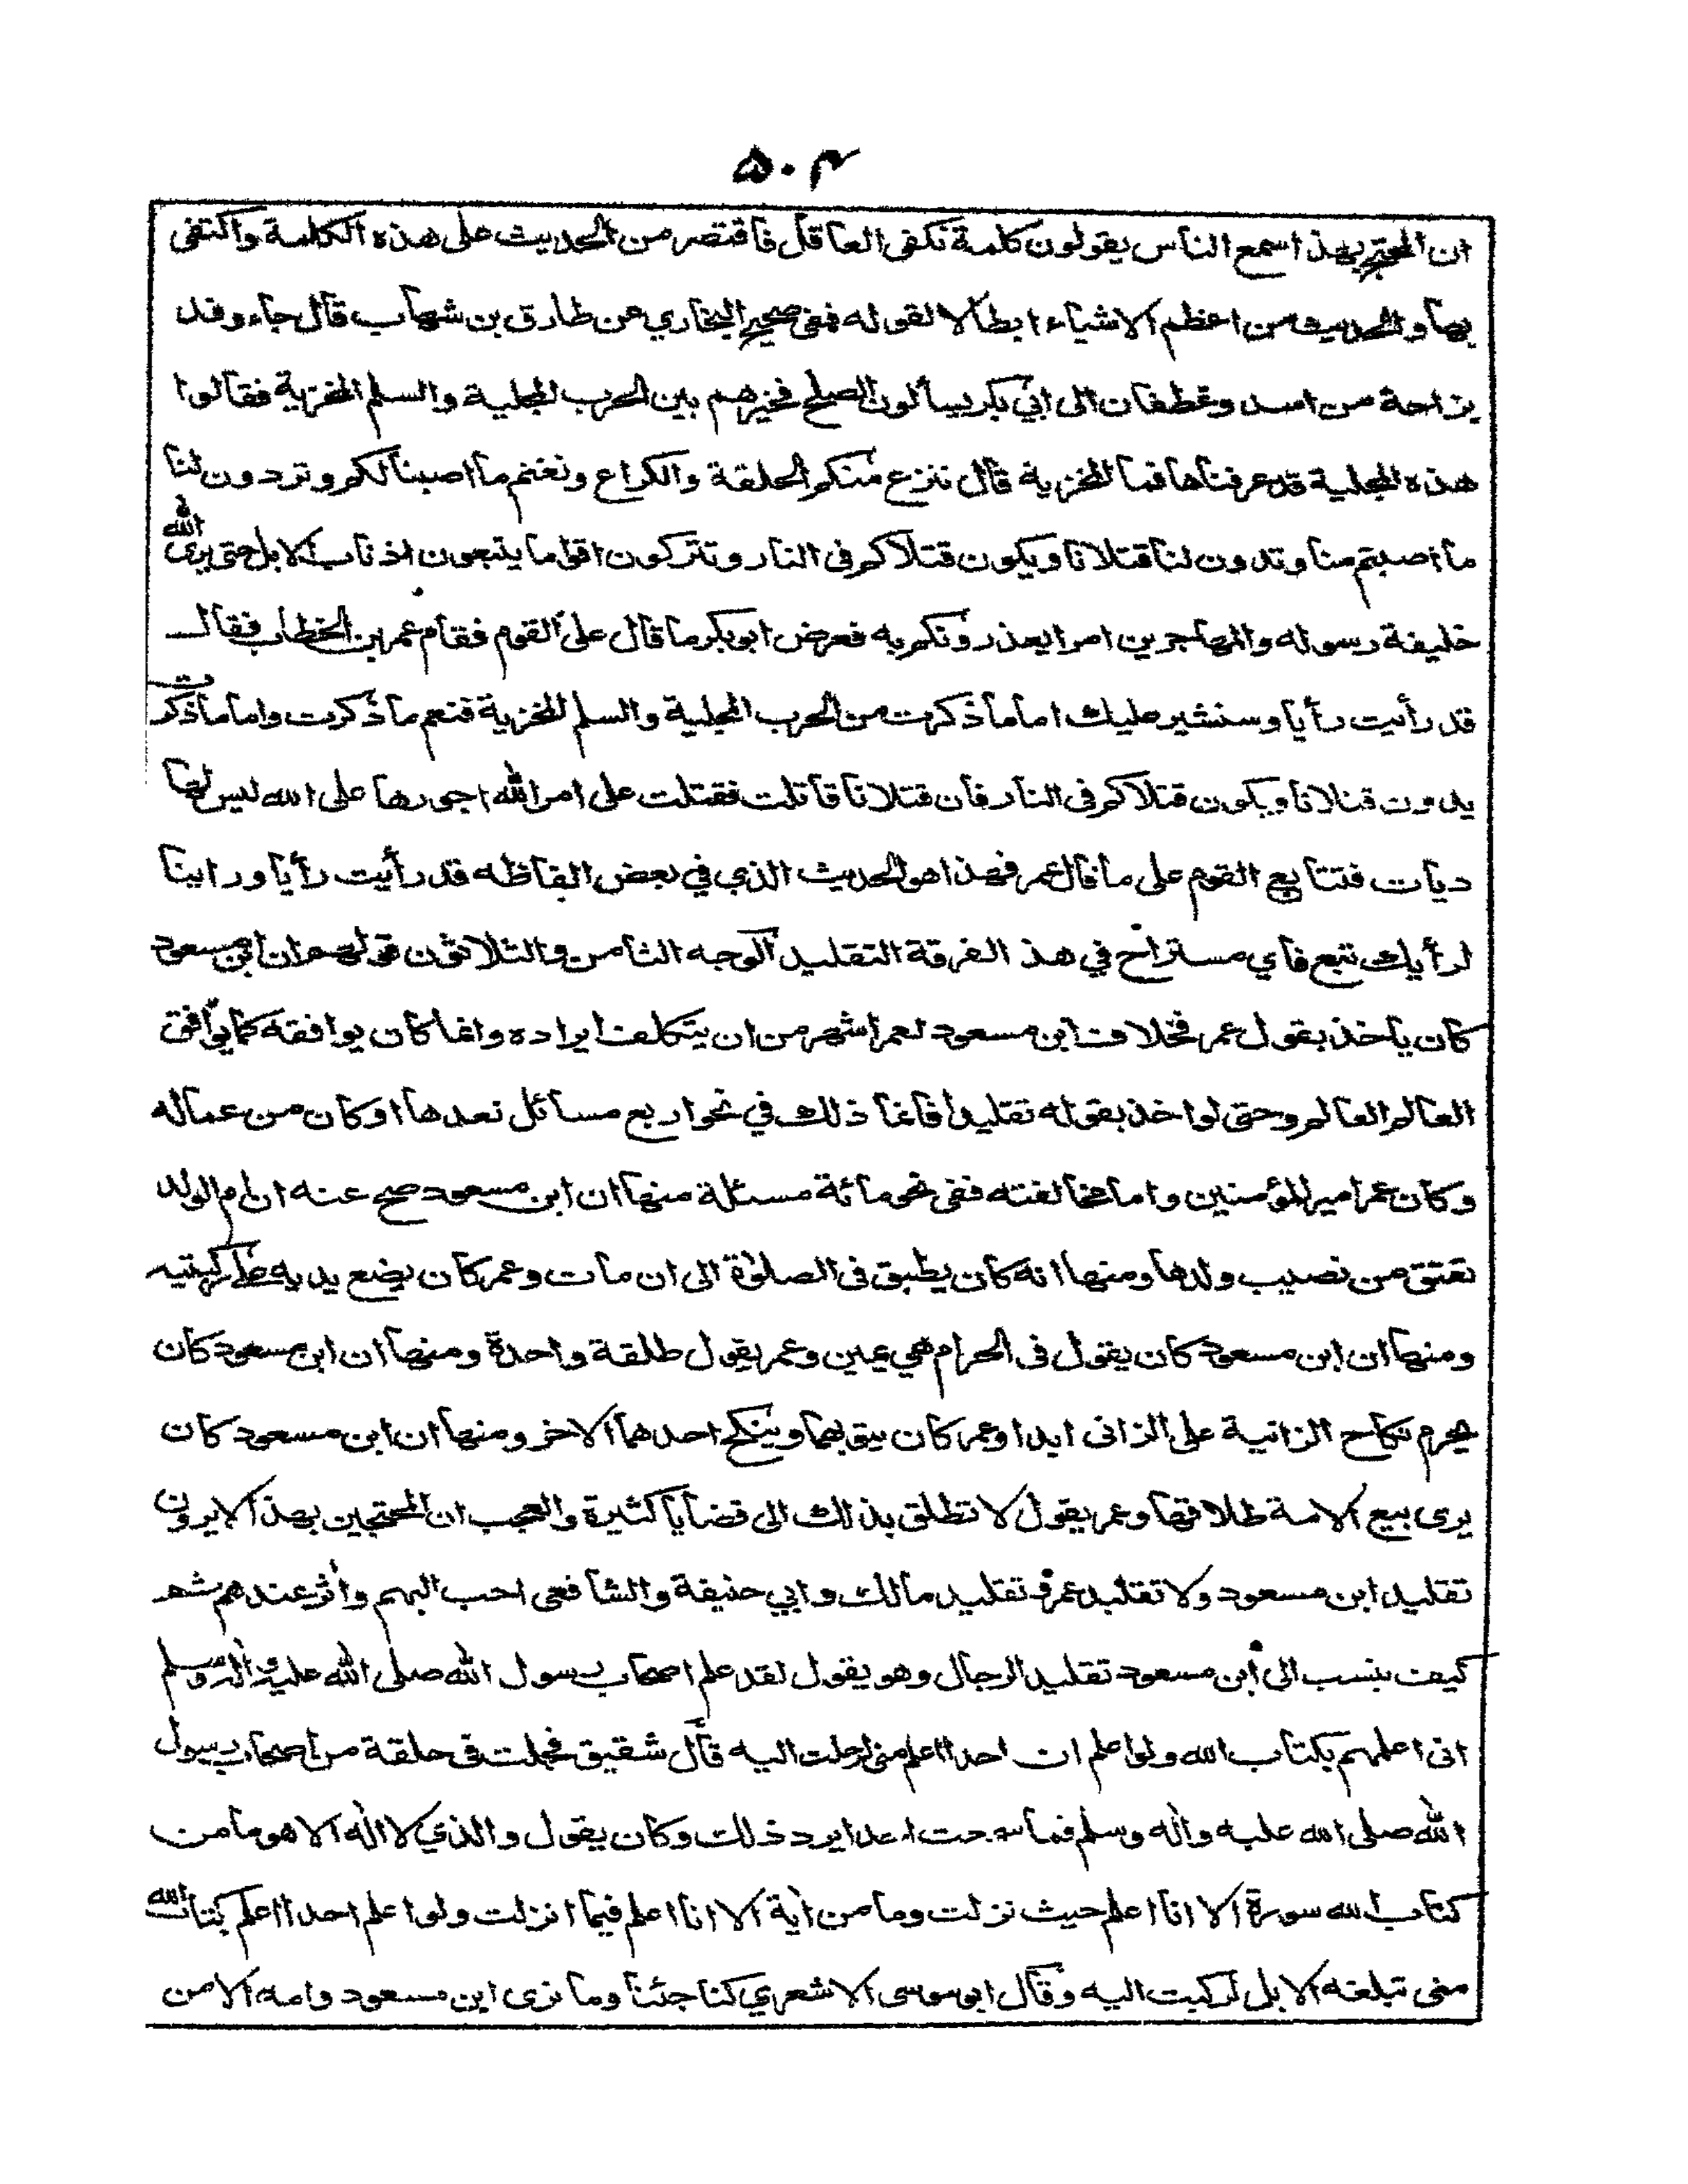 ۵۰۴
ان المحتج بهذا سمع الناس يقولون كلمة تكفى العاقل فاقتصر من الحديث على هذه الكلمة واكتفى
بها والحديث من اعظم الاشياء ابطالا لقوله ففى صحيح البخاري عن طارق بن شهاب قال جاء وفد
بزاحة من اسد وغطفان الى ابي بكر يسألون الصلح فخيرهم بين الحرب المجلية والسلم المخزية فقالوا
هذه المجلية قد عرفناها فما المخزية قال ننزع منكم الحلقة والكراع ونغنم ما اصبنا لكم وتردون لنا
ما اصبتم منا وتدون لنا قتلانا ويكون قتلاكم فى النار وتتركون اقواما يتبعون اذناب الابل حتى يرى الله
خليفة رسوله والمهاجرين امرا يعذرونكم به فعرض ابوبكر ما قال على القوم فقام عمر بن الخطاب فقال
قد رأيت رأيا وسنشير عليك اما ما ذكرت من الحرب المجلية والسلم المخزية فنعم ما ذكرت واما ما ذكرت
يدون قتلانا ويكون قتلاكم فى النار فان قتلانا قاتلت فقتلت على امر الله اجورها على الله ليس لها
ديات فتتابع القوم على ما قال عمر فهذا هو الحديث الذي في بعض الفاظه قد رأيت رأيا وراينا
لرأيك تبع فاي مستراح في هذ الفرقة التقليد الوجه الثامن والثلاثون قولهم ان ابن مسعود
كان ياخذ بقول عمر فخلاف ابن مسعود لعمر اشهر من ان يتكلف ايراده وانما كان يوافقه كما يوافق
العالم العالم وحتى لو اخذ بقوله تقليدا فانما ذلك في نحو اربع مسائل نعدها اوكان من عماله
وكان عمر امير المؤمنين واما مخالفته ففى نحو مائة مسئلة منها ان ابن مسعود صح عنه ان ام الولد
تعتق من نصيب ولدها ومنها انه كان يطبق فى الصلوة الى ان مات وعمر كان يضع يديه على ركبتيه
ومنها ان ابن مسعود كان يقول فى الحرام هي يمين وعمر يقول طلقة واحدة ومنها ان ابن مسعود كان
يحرم نكاح الزانية على الزانى ابدا وعمر كان يتوبهما وينكح احدهما الاخر ومنها ان ابن مسعود كان
يرى بيع الامة طلاقها وعمر يقول لا تطلق بذلك الى قضايا كثيرة والعجب ان المحتجين بهذا لا يرون
تقليد ابن مسعود ولا تقليد عمر و تقليد مالك وابي حنيفة والشافعى احب اليهم واٰثر عندهم ثم
كيف ينسب الى ابن مسعود تقليد الرجال وهو يقول لقد علم اصحاب رسول الله صلى الله عليه واٰله وسلم
انى اعلمهم بكتاب الله ولو اعلم ان احدا اعلم منى لرحلت اليه قال شقيق فجلست فى حلقة من اصحاب رسول
الله صلى الله عليه واٰله وسلم فما سمعت احدا يرد ذلك وكان يقول والذي لا اله الا هو ما من
كتاب الله سورة الا انا اعلم حيث نزلت وما من اٰية الا انا اعلم فيما انزلت ولو اعلم احدا اعلم بكتاب الله
منى تبلغه الابل لركبت اليه وقال ابوموسى الاشعري كنا جئنا وما نرى ابن مسعود وامه الا من